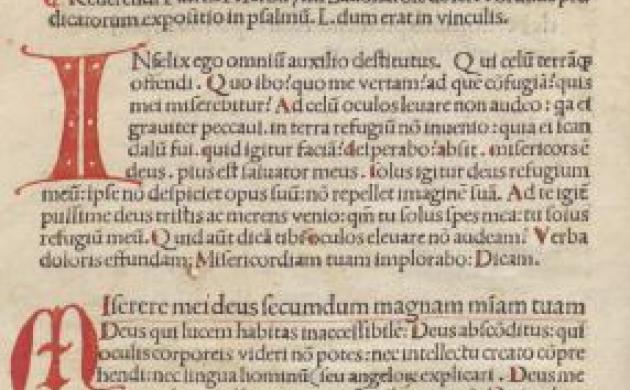 dicatorum expoſitio in pſalmū. L. dum erat in vinculis.
INfelix ego omniū auxilio deſtitutus. Qui celū terrāq̄
offendi. Quo ibo? quo me vertam? ad quē cōfugiā? quis
mei miſerebitur? Ad celū oculos leuare non audeo: qa ei
grauiter peccaui. in terra refugiū nō inuenio: quia ei ſcan
dalū fui. quid igitur faciā? deſperabo? abſit. miſericors ē
deus. pius eſt ſaluator meus. ſolus igitur deus refugium
meū: ipſe nō deſpiciet opus ſuū: nō repellet imaginē ſuā. Ad te igit̄
piiſſime deus triſtis ac merens venio: qm̄ tu ſolus ſpes mea: tu ſolus
refugiū meū. Quid aūt dicā tibi? oculos eleuare nō audeam? Verba
doloris effundam; Miſericordiam tuam implorabo: Dicam.
MIſerere mei deus ſecundum magnam miam tuam
Deus qui lucem habitas inacceſſibilē: Deus abſcōditus: qui
oculis corporeis videri nō potes: nec intellectu creato cōpre
hendi: nec lingua hominū ſeu angeloꝝ explicari. Deus me